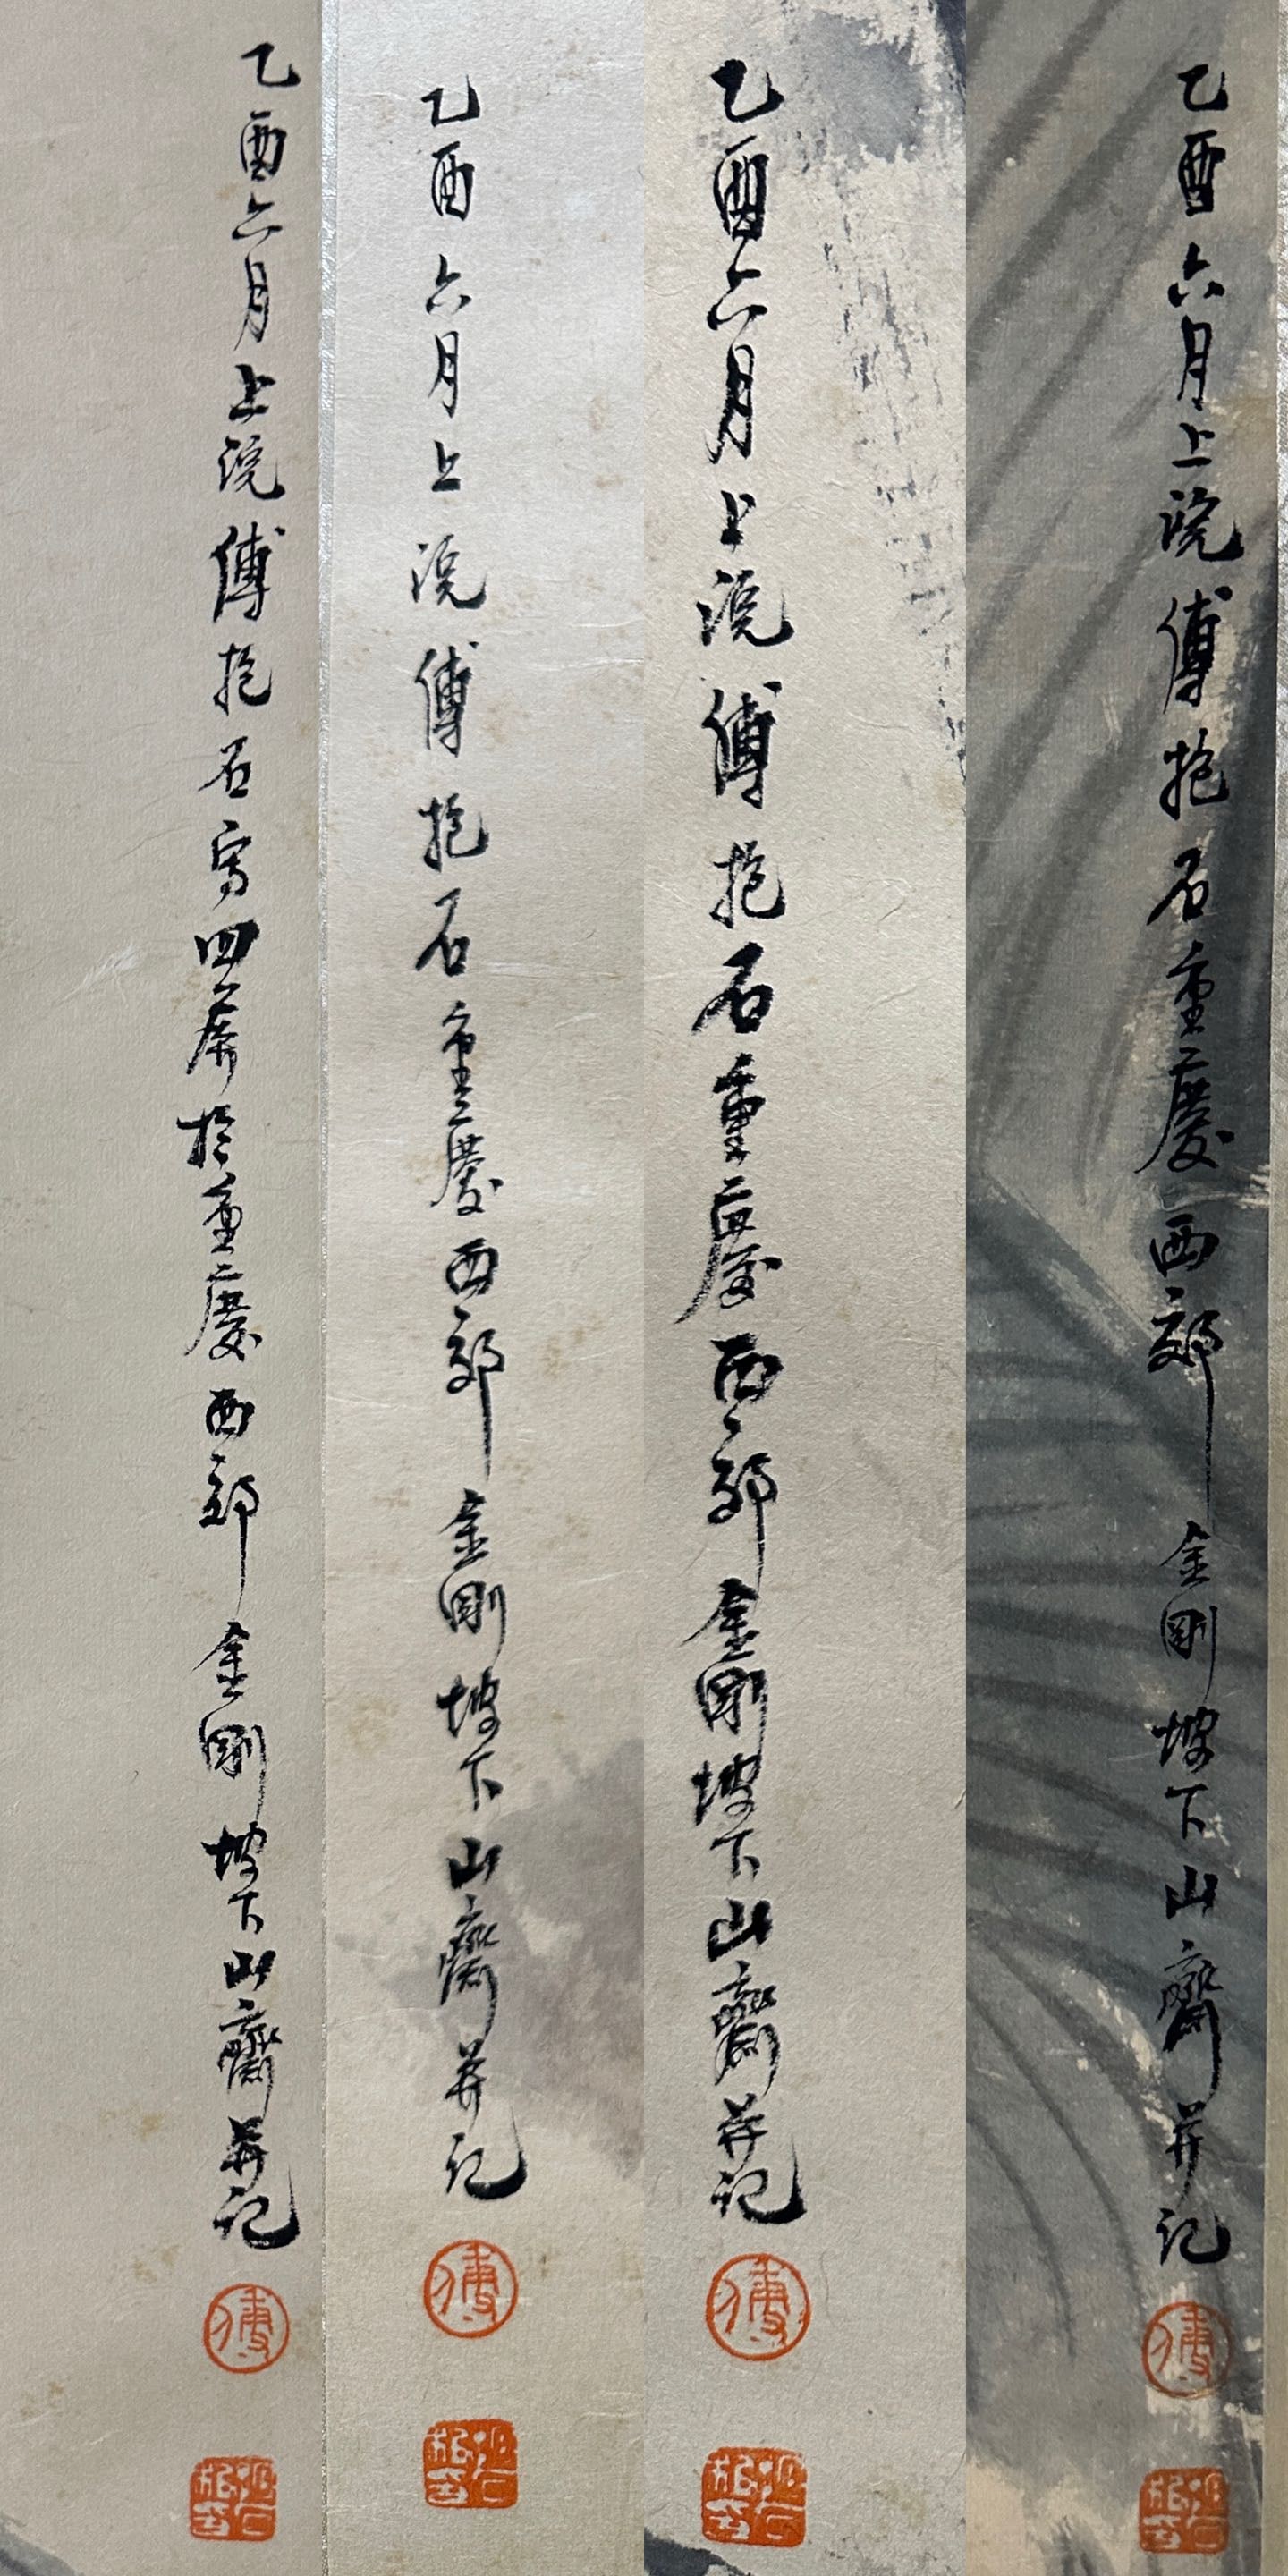 乙酉六月上浣傅抱石寫四屏於重慶西郊金剛坡下山齋并記
傅
乙酉六月上浣傅抱石重慶西郊金剛坡下山齋并記
傅
乙酉六月上浣傅抱石重慶西郊金剛坡下山齋并記
傅
乙酉六月上浣傅抱石重慶西郊金剛坡下山齋并記
傅